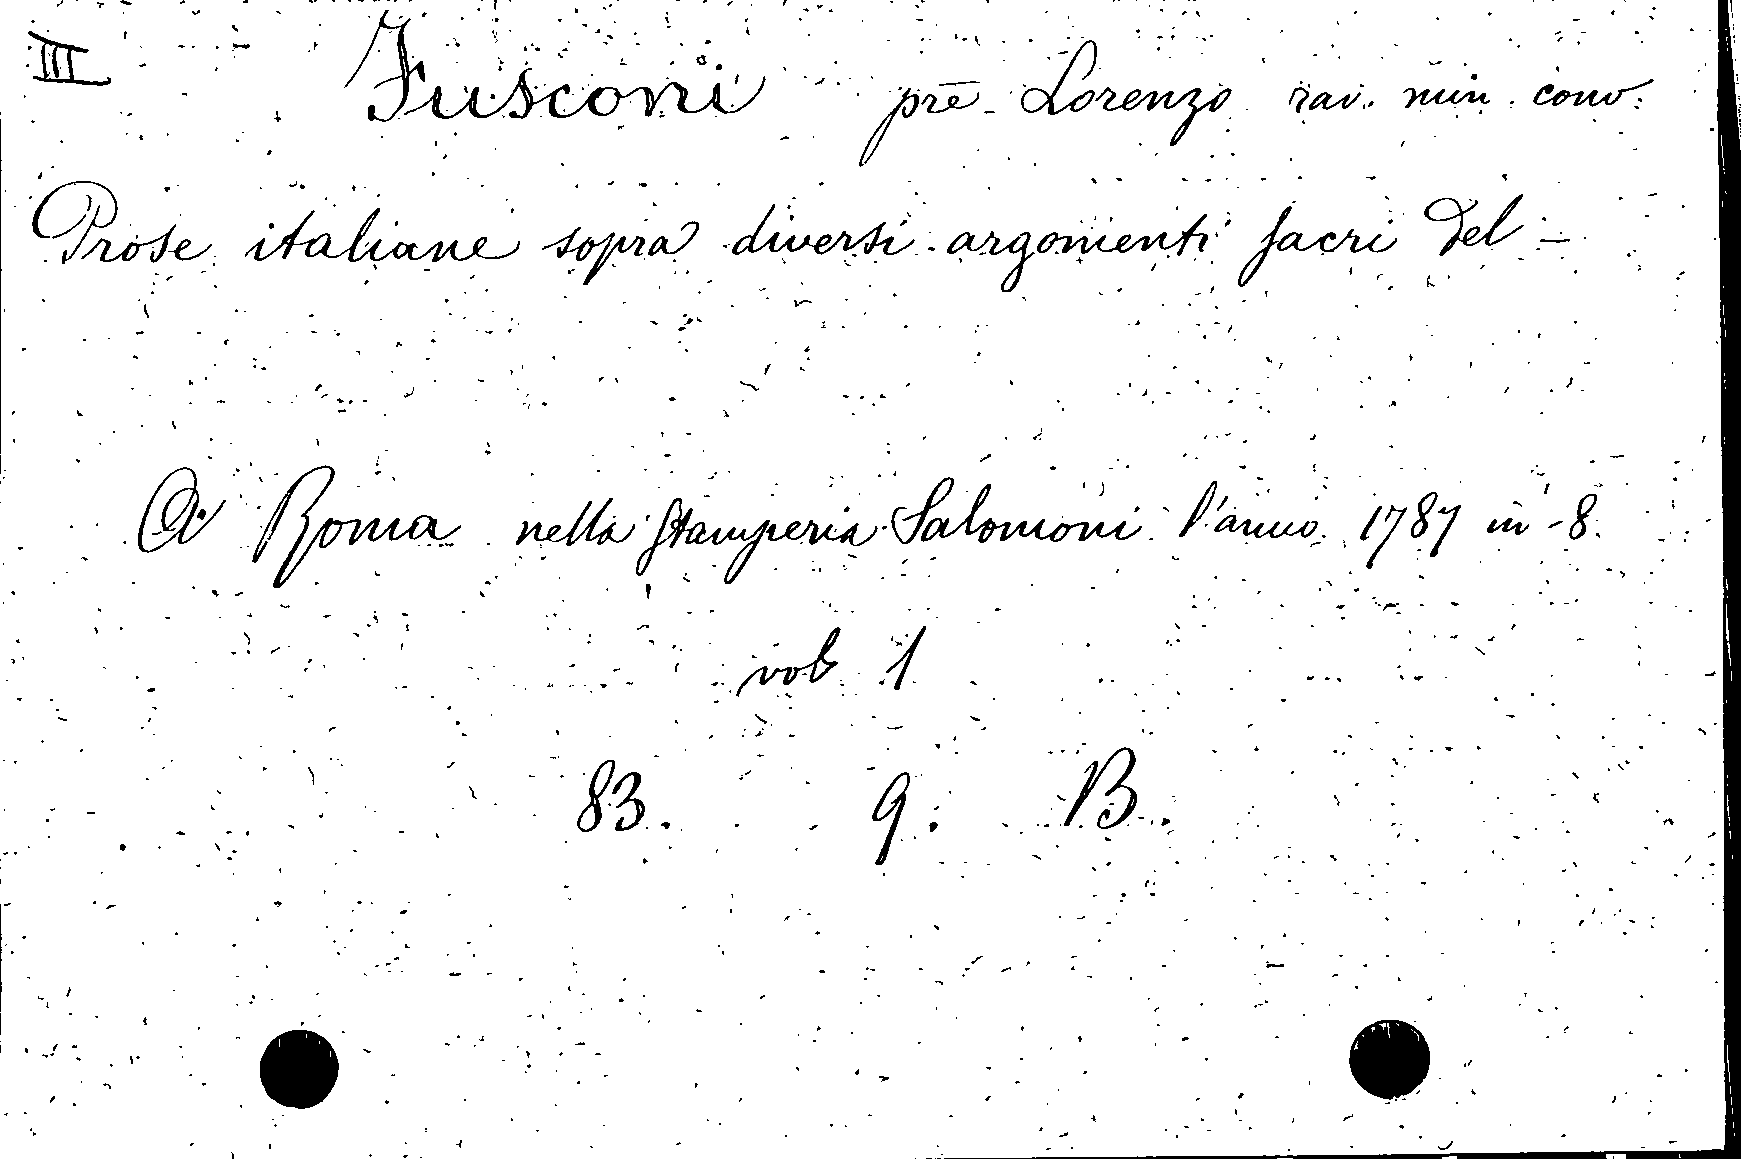 III
Fusconi prē. Lorenzo rav. min. conv.
Prose italiane sopra diversi argomenti sacri del –
A Roma nella Stamperia Salomoni l'anno 1787 in-8.
vol 1
83. 9. B.